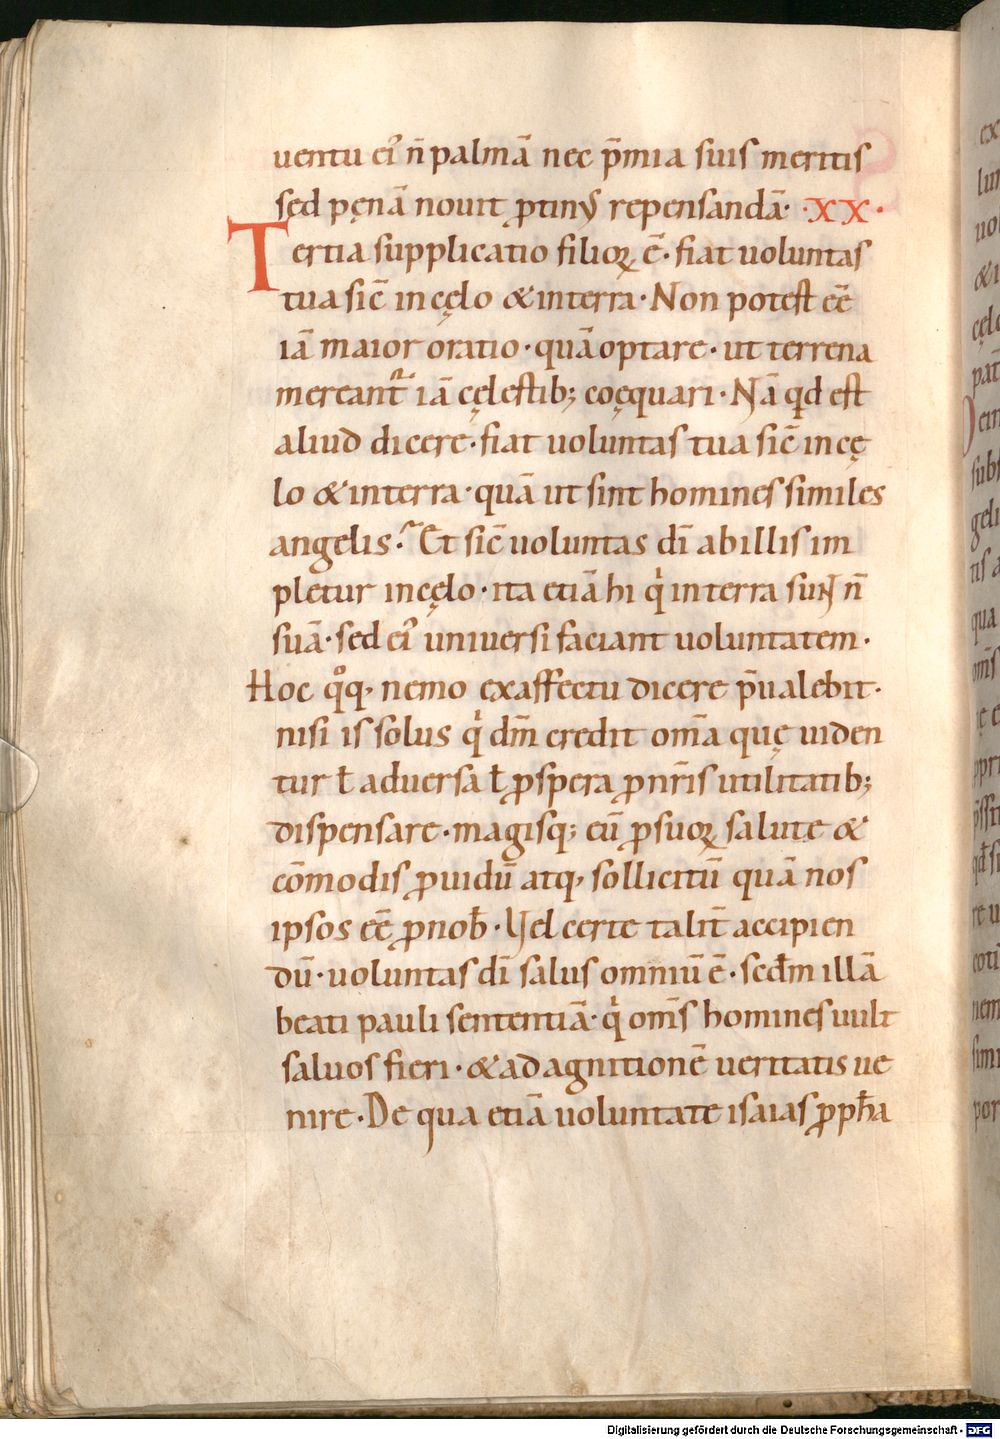 uentu ei᾽ n̄ palmā nec p̄mia suis meritis
sed pęnā nouit ꝓtinꝰ repensandā· ·XX·
Tertia supplicatio filioꝝ ē· fiat uoluntas
tua sic̄ in cęlo & in terra· Non potest eē
iā maior oratio· quā optare· ut terrena
mereant᷑ iā cęlestib; coęquari· Nā qd est
aliud dicere· fiat uoluntas tua sic̄ in cę
lo & in terra· quā ut sint homines similes
angelis? Et sic̄ uoluntas dī ab illis im
pletur in cęlo· ita etiā hi qͥ in terra sunt n̄
suā· sed ei᾽ uniuersi faciant uoluntatem·
Hoc qͦq, nemo ex affectu dicere p̄ualebit·
nisi is solus qͥ dm̄ credit om̄a quę uiden
tur ł aduersa ł ꝓspera ꝓ nr̄is utilitatib;
dispensare· magisq; eū ꝓ suoꝝ salute &
cōmodis ꝓuidū atq, sollicitū quā nos
ipsos eē ꝓ nob̄· Vel certe talit̄ accipien
dū· uoluntas dī salus omniū ē· scdm̄ illā
beati pauli sententiā· qͥ om̄s homines uult
saluos fieri· & ad agnitionē ueritatis ue
nire· De qua etiā uoluntate isaias ꝓph̄a
ex
Digitalisierung gefördert durch die Deutsche Forschungsgemeinschaft - DFG